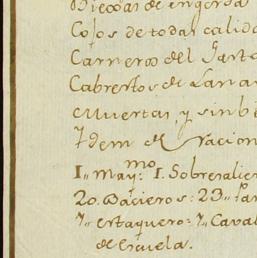 de engorda
Cojos de todas calid
Carneros del Gasto
Cabrestos de Lana
muertas, y sin
Ydem de racion
1,, May.mo 1. Sobresalien
20. Bacieros: 23,, Pa
7,, estaquero: 7,, Caval
de Esuela.